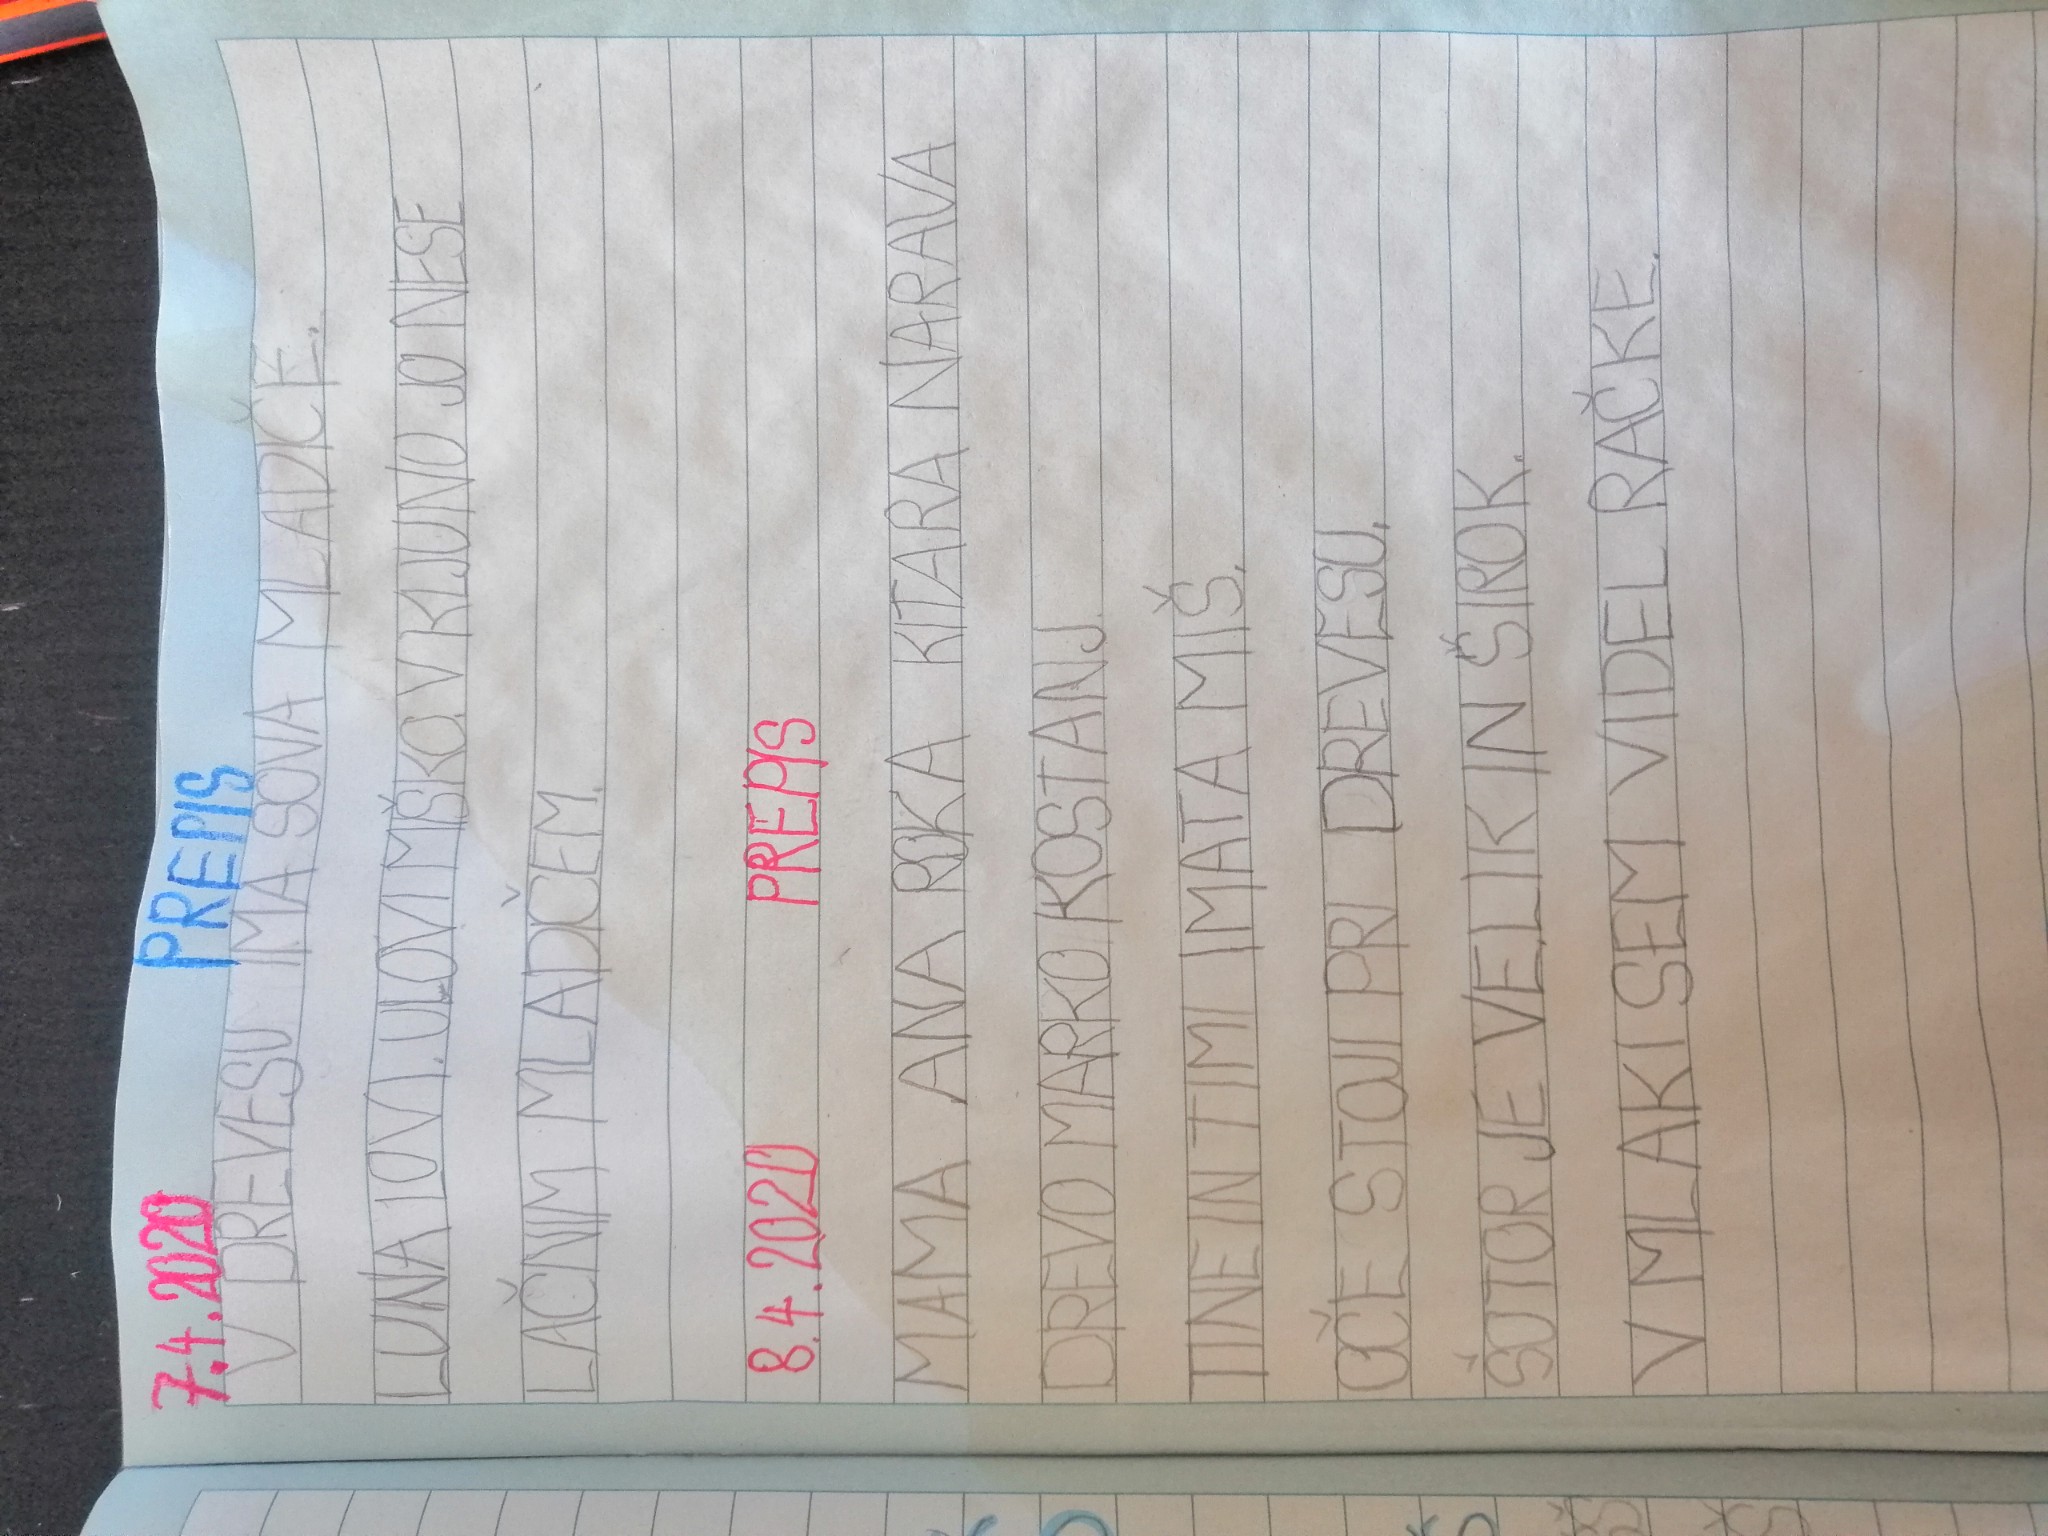 7.4.2020 PREPIS
V DREVESU IMA SOVA MLADIČE.
LUNA LOVI. ULOVI MIŠKO. V KLJUNU JO NESE
LAČNIM MLADIČEM.
8.4.2020 PREPIS
MAMA ANA ROKA KITARA NARAVA
DREVO MARKO KOSTANJ
TINE IN TIMI IMATA MIŠ.
OČE STOJI PRI DREVESU.
ŠOTOR JE VELIK IN ŠIROK.
V MLAKI SEM VIDEL RAČKE.